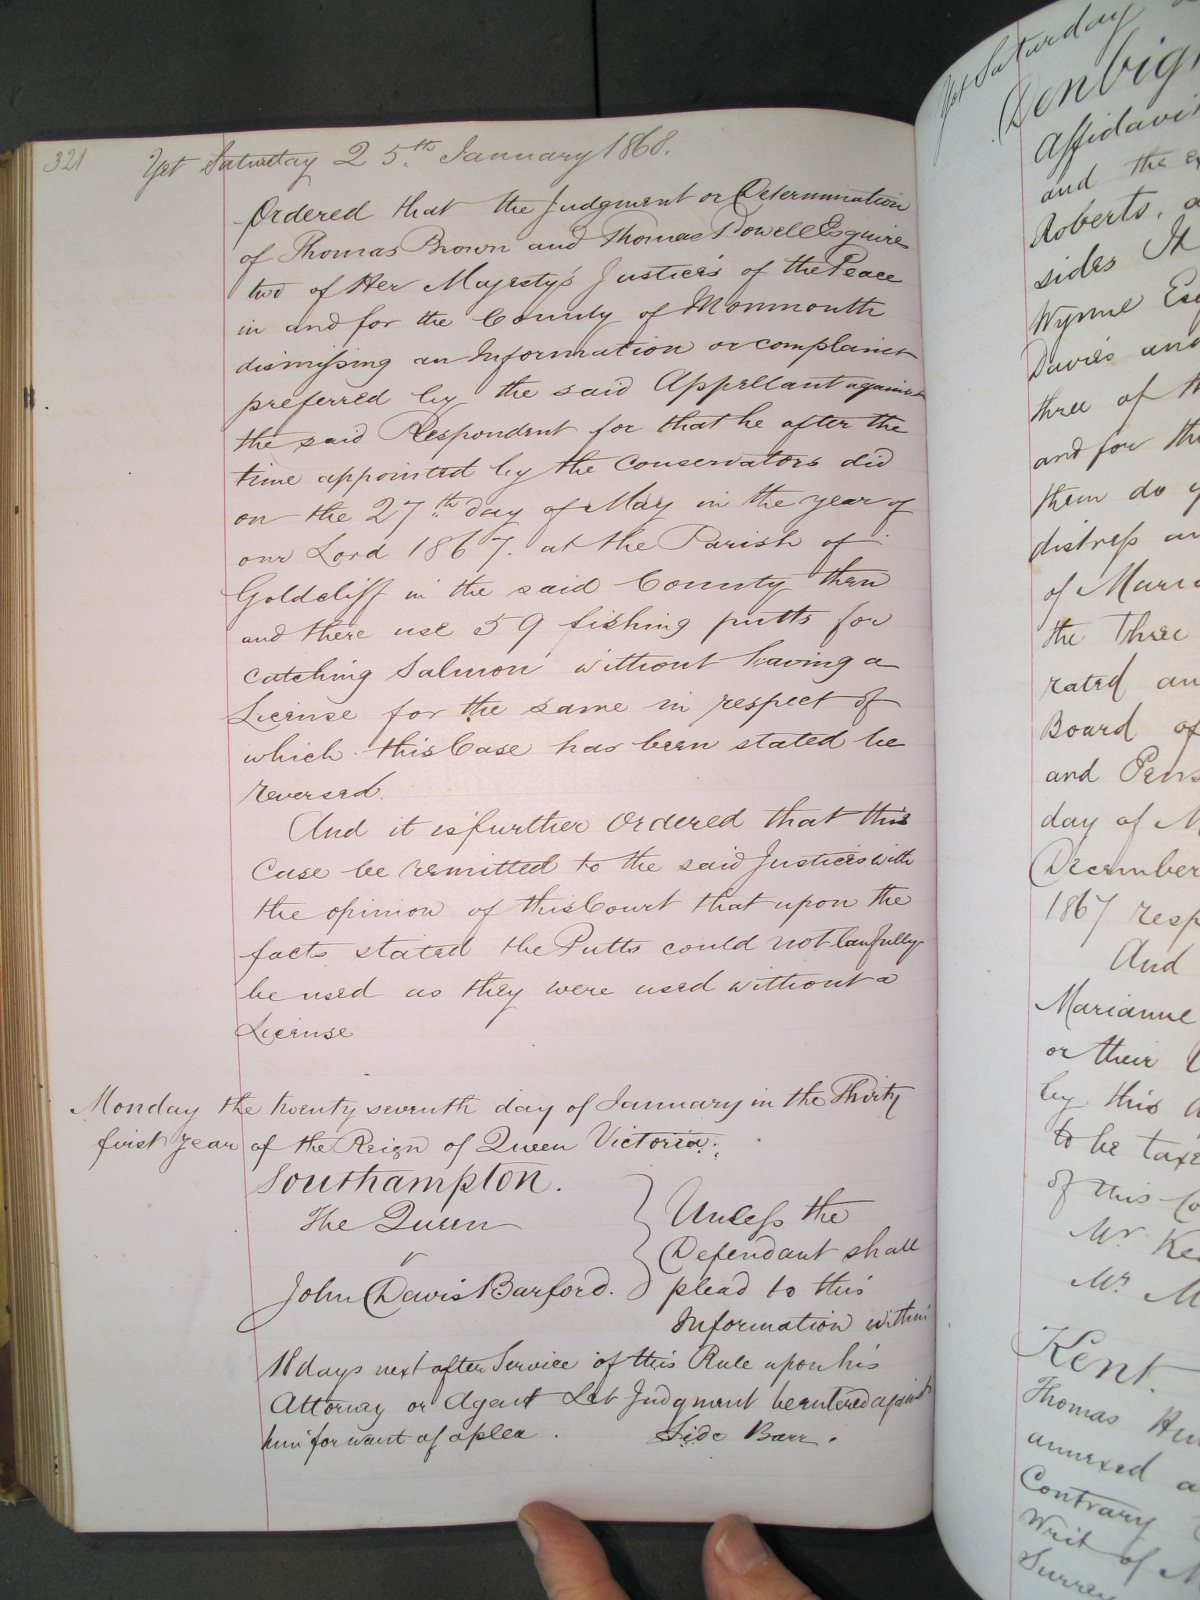 321
Yet Saturday 25.th January 1868.
Ordered that the Judgment or Determination
of Thomas Brown and Thomas Powell Esquires
two of Her Majesty's Justices of the Peace
in and for the County of Monmouth
dismissing an Information or complaint
preferred by the said Appellant against
the said Respondent for that he after the
time appointed by the Conservators did
on the 27th day of May in the year of
our Lord 1867. at the Parish of
Goldcliff in the said County then
and there use 59 fishing putts for
catching Salmon without having a
License for the same in respect of
which this Case has been stated be
reversed.
And it is further Ordered that this
Case be remitted to the said Justices with
the opinion of this Court that upon the
facts stated the Putts could not lawfully
be used as they were used without a
License
Monday the twenty seventh day of January in the Thirty
first year of the Reign of Queen Victoria.
Southampton.
The Queen
v
John Davis Barford.
Unless the
Defendant shall
plead to this
Information within
18 days next after Service of this Rule upon his
Attorney or Agent Let Judgment be entered against
him for want of a plea.
Side Barr.
Yet Saturday
Denbigh
Affidavit
and the
Roberts,
sides It
Wynne Esq
Davies and
three of th
and for the
them do
distress an
of Maria
the Three
rated an
Board of
and Pens
day of M
December
1867 resp
And
Marianne
or their
by this
to be taxe
of this Co
Mr Ke
Mr. M
Kent.
Thomas Hu
annexed a
Contrary
Writ of M
Surrey